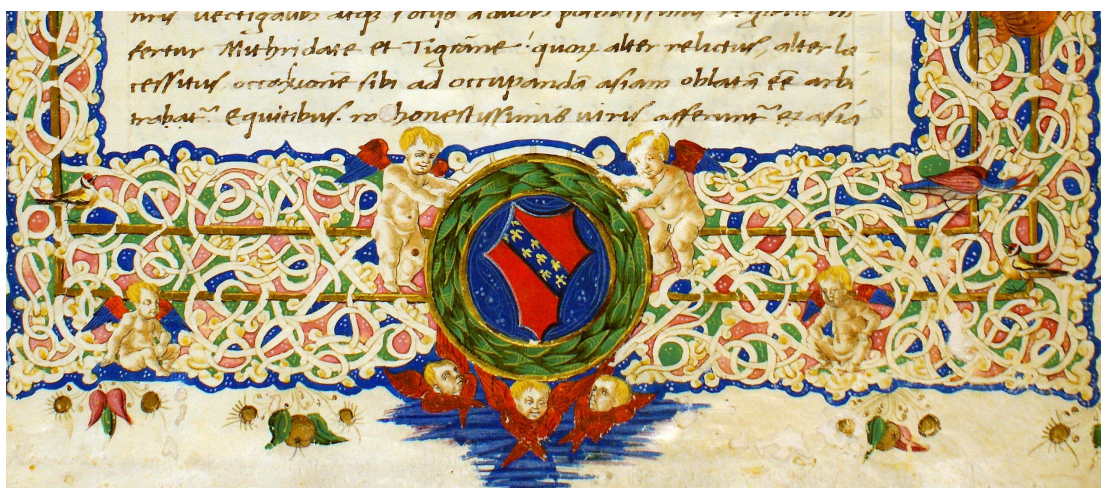 tris vectigalibus atq; sociis a duobus potentissimis regibus in-
fertur Mithridate et Tigrane: quoꝝ alter relictus, alter la-
cessitus occasionē sibi ad occupandā asiam oblatā eē arbi
trabat᷑. Equitibus. ro honestissimis uiris afferunt᷑ ex asia